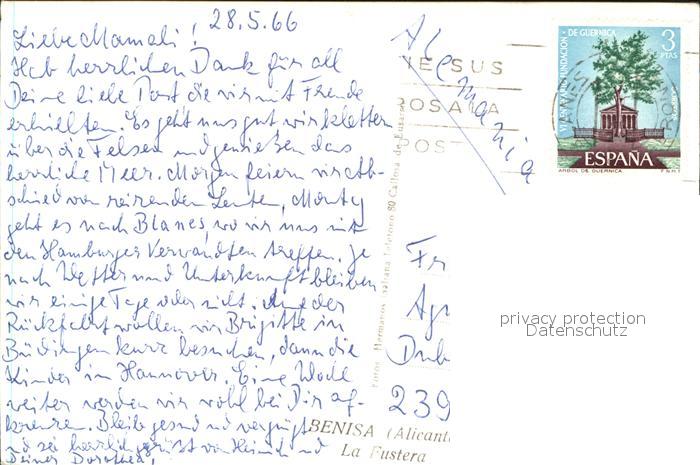 28.5.66
Liebe Mamali!
Hab herrlichen Dank für all
Deine liebe Post die wir mit Freude
erhielten. Es geht uns gut wir klettern
über die Felsen und genießen das
herrliche Meer. Morgen feiern wir Ab-
schied von reizenden Leuten, Montg
geht es nach Blanes, wo wir uns mit
den Hamburger Verwandten treffen. Je
nach Wetter und Unterkunft bleiben
wir einige Tage oder nicht. Auf der
Rückfahrt wollen wir Brigitte in
Büdingen kurz besuchen, dann die
Kinder in Hannover. Eine Woche
weiter werden wir wohl bei Dir auf-
kreuzen. Bleib gesund und vergnügt
und sei herzlich gegrüßt von Heinrich und
Deiner Dorothea.
Alemania
Fr
Agn
Dub
239
BENISA (Alicant
La Fustera
VI CENTENARIO FUNDACION DE GUERNICA
3
PTAS
ESPAÑA
ARBOL DE GUERNICA
F.N.M.T.
privacy protection
Datenschutz